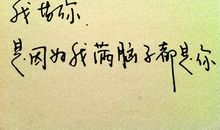 我古你.
是因为我满脑子都是你